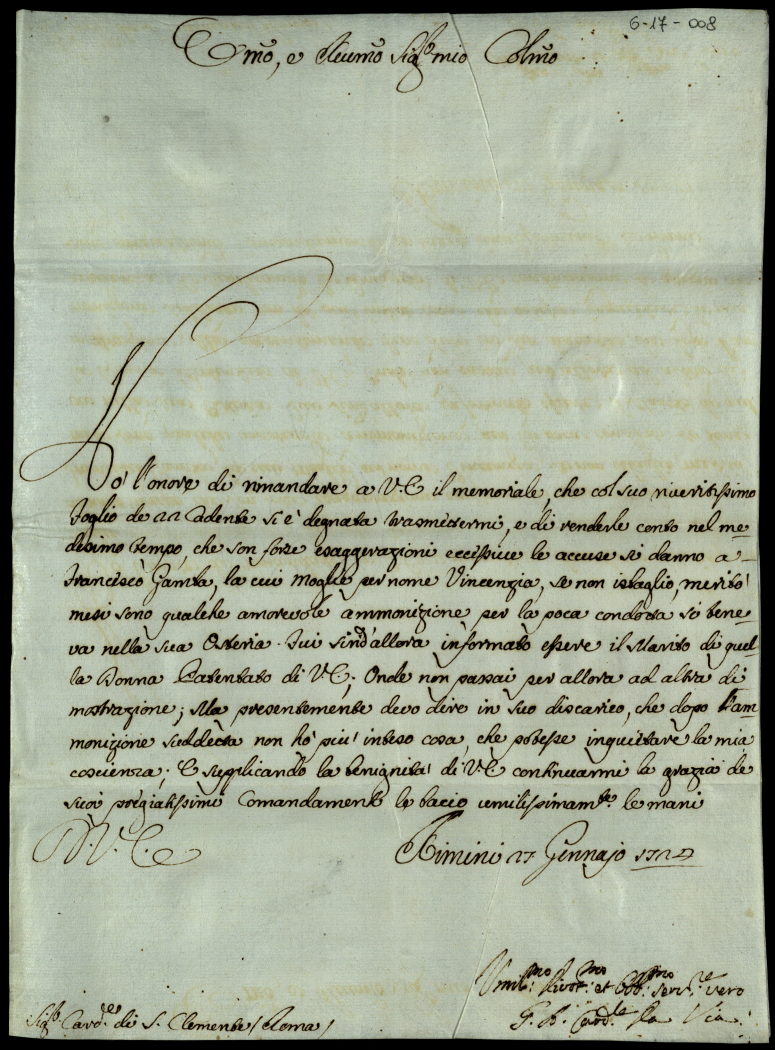 6-17-008
Emo, e Reumo Sigr. mio Colmo
Hò l'onore di rimandare a V.E. il memoriale, che col suo riveritissimo
foglio de 22 cadente si è degnata trasmettermi, e di renderle conto nel me-
desimo tempo, che son forse esaggerazioni eccessive le accuse si danno a
Francesco Gamba, la cui moglie per nome Vincenzia, se non isbaglio, meritò
mesi sono qualche amorevole ammonizione per la poca condotta si tene-
va nella sua Osteria. Fui sind'allora informato essere il Marito di quel-
la Donna Patentato di V.E; Onde non passai per allora ad altra di
mostrazione; Ma presentemente devo dire in suo discarico, che dopo l'am-
monizione suddetta non hò piu' inteso cosa, che potesse inquietare la mia
coscienza; E supplicando la benignità di V.E. continuarmi la grazia de
suoi pregiatissimi Comandamenti le bacio umilissimamte. le mani
D. V. E.
Rimini 27 Gennajo 1724
Umilmo. Divotmo. et Obbmo. servre. vero
G. A. Cardle. Da Via
Sigr. Cardle. di S. Clemente / Roma /